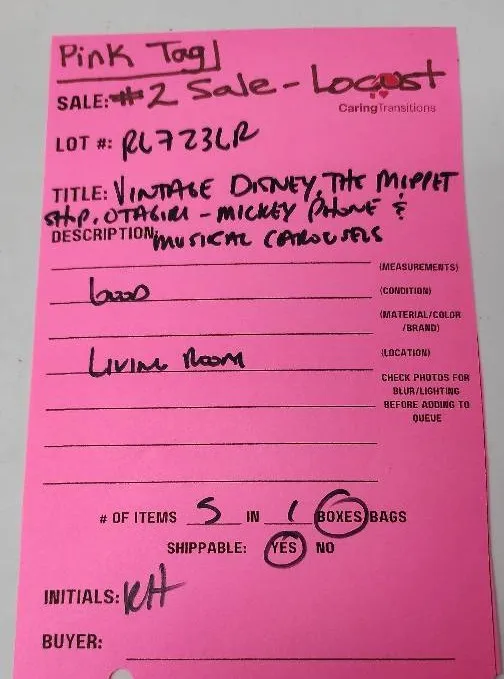 Pink Tag
SALE: #2 Sale - Locust
CaringTransitions
LOT #: RL723LR
TITLE: VINTAGE DISNEY, THE MUPPET
SHP, OTAGIRI - MICKEY PHONE &
DESCRIPTION: MUSICAL CAROUSELS
(MEASUREMENTS)
GOOD (CONDITION)
(MATERIAL/COLOR
/BRAND)
LIVING ROOM (LOCATION)
CHECK PHOTOS FOR
BLUR/LIGHTING
BEFORE ADDING TO
QUEUE
# OF ITEMS 5 IN 1 BOXES BAGS
SHIPPABLE: YES NO
INITIALS: RH
BUYER: